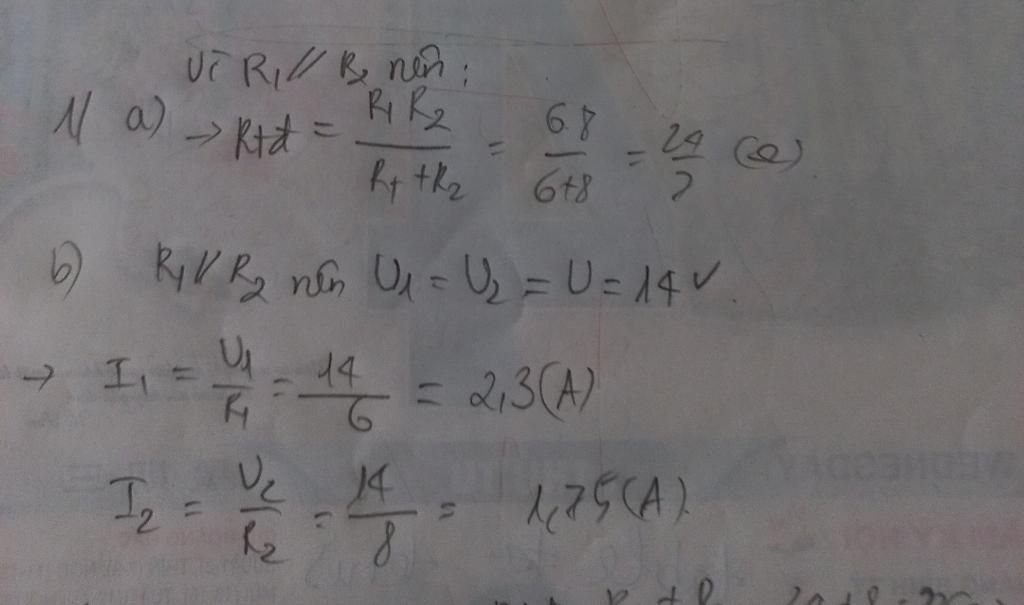 Vì R₁ // R₂ nên :
1/ a) → Rtđ = R₁ R₂ / R₁ + R₂ = 6.8 / 6+8 = 24 / 7 (Ω)
b) R₁ // R₂ nên U₁ = U₂ = U = 14 V.
→ I₁ = U₁ / R₁ = 14 / 6 = 2,3 (A)
I₂ = U₂ / R₂ = 14 / 8 = 1,75 (A).
WEDNESDAY